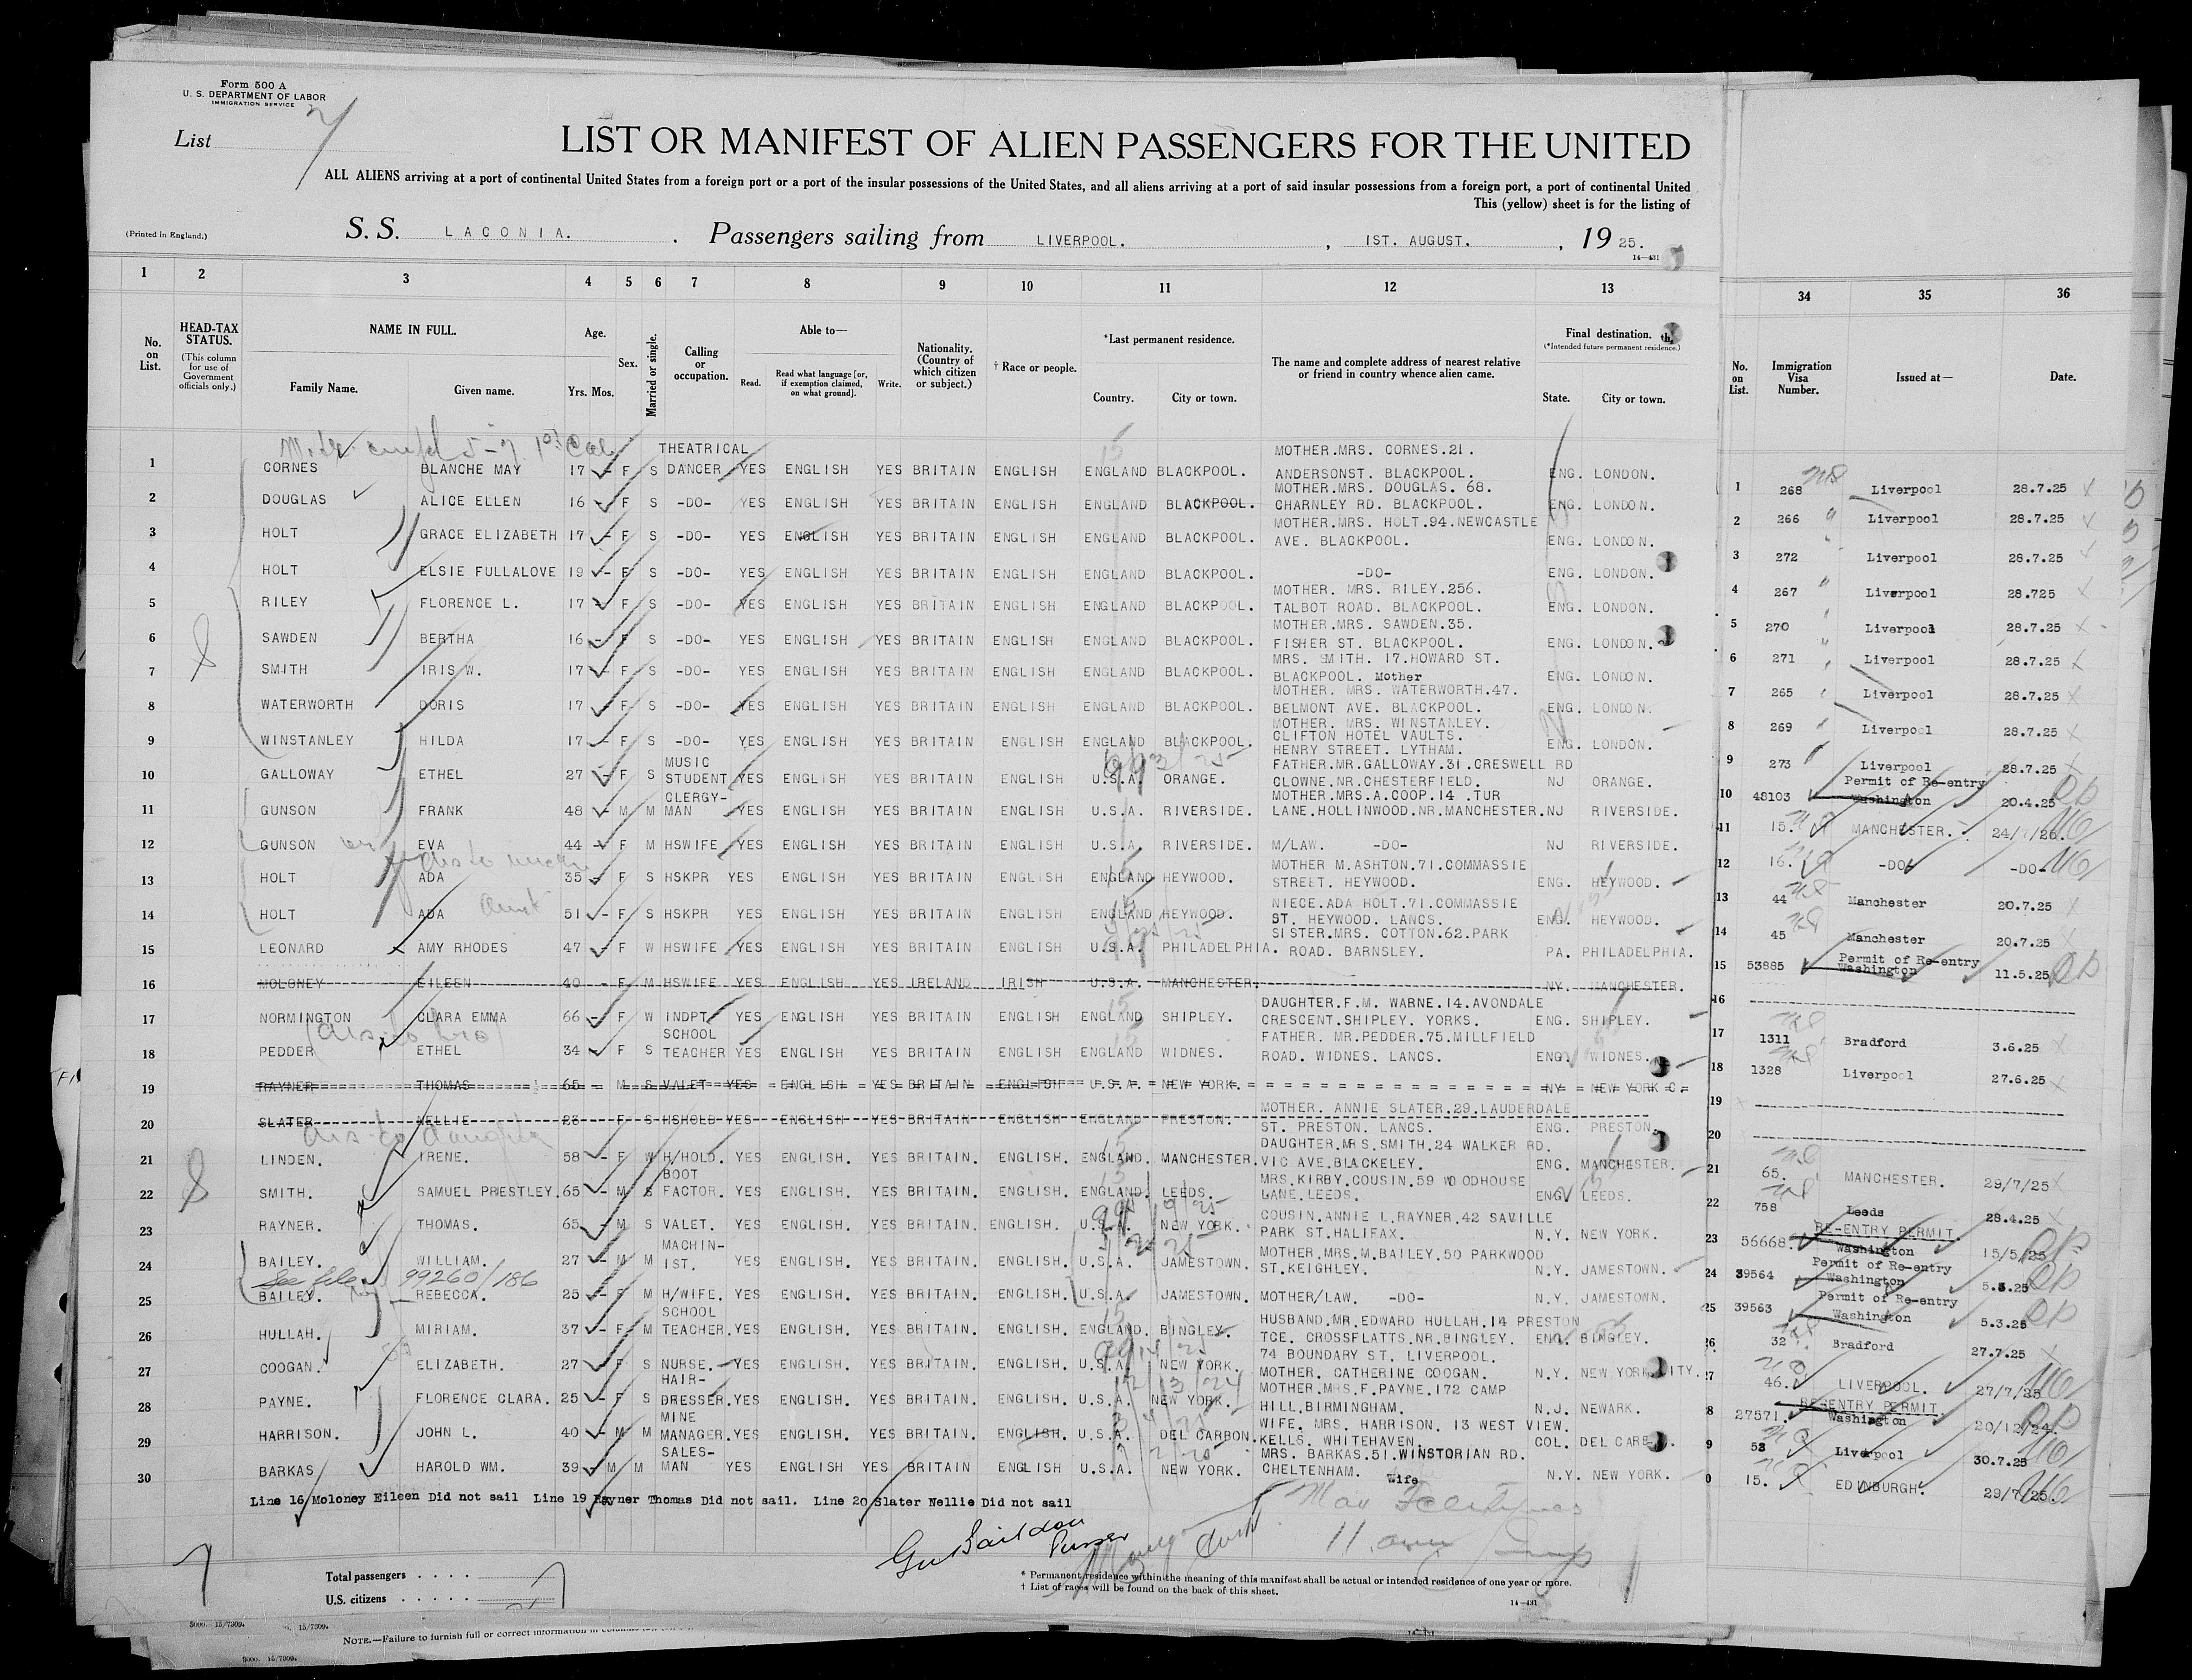 Form 500 A
U. S. DEPARTMENT OF LABOR
IMMIGRATION SERVICE
List 7
LIST OR MANIFEST OF ALIEN PASSENGERS FOR THE UNITED
ALL ALIENS arriving at a port of continental United States from a foreign port or a port of the insular possessions of the United States, and all aliens arriving at a port of said insular possessions from a foreign port, a port of continental United
This (yellow) sheet is for the listing of
(Printed in England.)
S. S. LACONIA. . Passengers sailing from LIVERPOOL. , 1ST. AUGUST. , 19 25.
14—431
1 2 3 4 5 6 7 8 9 10 11 12 13 34 35 36
No. on List. HEAD-TAX STATUS. (This column for use of Government officials only.) NAME IN FULL. Family Name. Given name. Age. Yrs. Mos. Sex. Married or single. Calling or occupation. Able to— Read. Read what language [or, if exemption claimed, on what ground]. Write. Nationality. (Country of which citizen or subject.) † Race or people. *Last permanent residence. Country. City or town. The name and complete address of nearest relative or friend in country whence alien came. Final destination. (*Intended future permanent residence.) State. City or town. No. on List. Immigration Visa Number. Issued at— Date.
1 CORNES BLANCHE MAY 17 - F S THEATRICAL DANCER YES ENGLISH YES BRITAIN ENGLISH ENGLAND BLACKPOOL. MOTHER.MRS. CORNES.21. ANDERSONST. BLACKPOOL. ENG. LONDON. 1 268 Liverpool 28.7.25
2 DOUGLAS ALICE ELLEN 16 F S -DO- YES ENGLISH YES BRITAIN ENGLISH ENGLAND BLACKPOOL. MOTHER.MRS. DOUGLAS. 68. CHARNLEY RD. BLACKPOOL. ENG. LONDON. 2 266 Liverpool 28.7.25
3 HOLT GRACE ELIZABETH 17 - F S -DO- YES ENGLISH YES BRITAIN ENGLISH ENGLAND BLACKPOOL. MOTHER.MRS. HOLT.94.NEWCASTLE AVE. BLACKPOOL. ENG. LONDON. 3 272 Liverpool 28.7.25
4 HOLT ELSIE FULLALOVE 19 - F S -DO- YES ENGLISH YES BRITAIN ENGLISH ENGLAND BLACKPOOL. -DO- ENG. LONDON. 4 267 Liverpool 28.725
5 RILEY FLORENCE L. 17 F S -DO- YES ENGLISH YES BRITAIN ENGLISH ENGLAND BLACKPOOL. MOTHER. MRS. RILEY.256. TALBOT ROAD. BLACKPOOL. ENG. LONDON. 5 270 Liverpool 28.7.25
6 SAWDEN BERTHA 16 - F S -DO- YES ENGLISH YES BRITAIN ENGLISH ENGLAND BLACKPOOL. MOTHER.MRS. SAWDEN.35. FISHER ST. BLACKPOOL. ENG. LONDON. 6 271 Liverpool 28.7.25
7 SMITH IRIS W. 17 - F S -DO- YES ENGLISH YES BRITAIN ENGLISH ENGLAND BLACKPOOL. MRS. SMITH. 17.HOWARD ST. BLACKPOOL. Mother ENG. LONDON. 7 265 Liverpool 28.7.25
8 WATERWORTH DORIS 17 - F S -DO- YES ENGLISH YES BRITAIN ENGLISH ENGLAND BLACKPOOL. MOTHER. MRS. WATERWORTH.47. BELMONT AVE. BLACKPOOL. ENG. LONDON. 8 269 Liverpool 28.7.25
9 WINSTANLEY HILDA 17 - F S -DO- YES ENGLISH YES BRITAIN ENGLISH ENGLAND BLACKPOOL. MOTHER. MRS. WINSTANLEY. CLIFTON HOTEL VAULTS. HENRY STREET. LYTHAM. ENG. LONDON. 9 273 Liverpool 28.7.25
10 GALLOWAY ETHEL 27 - F S MUSIC STUDENT YES ENGLISH YES BRITAIN ENGLISH U.S.A. ORANGE. FATHER.MR.GALLOWAY.31.CRESWELL RD CLOWNE.NR.CHESTERFIELD. NJ ORANGE. 10 48103 Permit of Re-entry Washington 20.4.25
11 GUNSON FRANK 48 - M M CLERGY-MAN YES ENGLISH YES BRITAIN ENGLISH U.S.A. RIVERSIDE. MOTHER.MRS.A.COOP.14 .TUR LANE.HOLLINWOOD.NR.MANCHESTER. NJ RIVERSIDE. 11 15. MANCHESTER. 24/7/25.
12 GUNSON EVA 44 - F M HSWIFE YES ENGLISH YES BRITAIN ENGLISH U.S.A. RIVERSIDE. M/LAW. -DO- NJ RIVERSIDE. 12 16. -DO- -DO-
13 HOLT ADA 35 F S HSKPR YES ENGLISH YES BRITAIN ENGLISH ENGLAND HEYWOOD. MOTHER M.ASHTON.71.COMMASSIE STREET. HEYWOOD. ENG. HEYWOOD. 13 44 Manchester 20.7.25
14 HOLT ADA Aunt 51 - F S HSKPR YES ENGLISH YES BRITAIN ENGLISH ENGLAND HEYWOOD. NIECE.ADA HOLT.71.COMMASSIE ST. HEYWOOD. LANCS. ENG. HEYWOOD. 14 45 Manchester 20.7.25
15 LEONARD AMY RHODES 47 - F W HSWIFE YES ENGLISH YES BRITAIN ENGLISH U.S.A. PHILADELPHIA. SISTER.MRS. COTTON.62.PARK ROAD. BARNSLEY. PA. PHILADELPHIA. 15 53885 Permit of Re-entry Washington 11.5.25
16 MOLONEY EILEEN 40 F M HSWIFE YES ENGLISH YES IRELAND IRISH U.S.A. MANCHESTER. NY. MANCHESTER. 16
17 NORMINGTON CLARA EMMA 66 - F W INDPT. YES ENGLISH YES BRITAIN ENGLISH ENGLAND SHIPLEY. DAUGHTER.F.M. WARNE.14.AVONDALE CRESCENT.SHIPLEY. YORKS. ENG. SHIPLEY. 17 1311 Bradford 3.6.25
18 PEDDER ETHEL 34 F S SCHOOL TEACHER YES ENGLISH YES BRITAIN ENGLISH ENGLAND WIDNES. FATHER. MR.PEDDER.75.MILLFIELD ROAD. WIDNES. LANCS. ENG. WIDNES. 18 1328 Liverpool 27.6.25
19 RAYNER THOMAS 65 M S VALET YES ENGLISH YES BRITAIN ENGLISH U.S.A. NEW YORK. NY NEW YORK C. 19
20 SLATER NELLIE 23 F S HSHOLD YES ENGLISH YES BRITAIN ENGLISH ENGLAND PRESTON. MOTHER. ANNIE SLATER.29.LAUDERDALE ST. PRESTON. LANCS. ENG. PRESTON. 20
21 LINDEN. IRENE. 58 - F W H/HOLD. YES ENGLISH. YES BRITAIN. ENGLISH. ENGLAND. MANCHESTER. DAUGHTER.MRS.SMITH.24 WALKER RD. VIC AVE.BLACKELEY. ENG. MANCHESTER. 21 65. MANCHESTER. 29/7/25
22 SMITH. SAMUEL PRIESTLEY. 65 - M S BOOT FACTOR. YES ENGLISH. YES BRITAIN. ENGLISH. ENGLAND. LEEDS. MRS.KIRBY.COUSIN.59 WOODHOUSE LANE.LEEDS. ENG. LEEDS. 22 758 Leeds 28.4.25
23 RAYNER. THOMAS. 65 - M S VALET. YES ENGLISH. YES BRITAIN. ENGLISH. U.S.A. NEW YORK. COUSIN.ANNIE L.RAYNER.42 SAVILLE PARK ST.HALIFAX. N.Y. NEW YORK. 23 56668. RE-ENTRY PERMIT. Washington 15/5/25
24 BAILEY. WILLIAM. 27 - M M MACHIN-IST. YES ENGLISH. YES BRITAIN. ENGLISH. U.S.A. JAMESTOWN. MOTHER.MRS.M.BAILEY.50 PARKWOOD ST.KEIGHLEY. N.Y. JAMESTOWN. 24 39564 Permit of Re-entry Washington 5.3.25
See file 99260/186
25 BAILEY. REBECCA. 25 - F M H/WIFE. YES ENGLISH. YES BRITAIN. ENGLISH. U.S.A. JAMESTOWN. MOTHER/LAW. -DO- N.Y. JAMESTOWN. 25 39563 Permit of Re-entry Washington 5.3.25
26 HULLAH. MIRIAM. 37 - F M SCHOOL TEACHER. YES ENGLISH. YES BRITAIN. ENGLISH. ENGLAND. BINGLEY. HUSBAND.MR.EDWARD HULLAH.14 PRESTON TCE. CROSSFLATTS.NR.BINGLEY. ENG. BINGLEY. 26 32 Bradford 27.7.25
27 COOGAN. ELIZABETH. 27 F S NURSE. YES ENGLISH. YES BRITAIN. ENGLISH. U.S.A. NEW YORK. 74 BOUNDARY ST. LIVERPOOL. MOTHER. CATHERINE COOGAN. N.Y. NEW YORK CITY. 27 46. LIVERPOOL. 27/7/25
28 PAYNE. FLORENCE CLARA. 25 - F S HAIR-DRESSER. YES ENGLISH. YES BRITAIN. ENGLISH. U.S.A. NEW YORK. MOTHER.MRS.F.PAYNE.172 CAMP HILL.BIRMINGHAM. N.J. NEWARK. 8 27571. RE-ENTRY PERMIT. Washington 20/12/24.
29 HARRISON. JOHN L. 40 - M M MINE MANAGER. YES ENGLISH. YES BRITAIN. ENGLISH. U.S.A. DEL CARBON. WIFE. MRS. HARRISON. 13 WEST VIEW. KELLS. WHITEHAVEN. COL. DEL CARB 9 53 Liverpool 30.7.25
30 BARKAS HAROLD WM. 39 M M SALES-MAN YES ENGLISH YES BRITAIN ENGLISH U.S.A. NEW YORK. MRS. BARKAS.51.WINSTORIAN RD. CHELTENHAM. Wife N.Y. NEW YORK. 0 15. EDINBURGH. 29/7/25.
Line 16 Moloney Eileen Did not sail Line 19 Rayner Thomas Did not sail. Line 20 Slater Nellie Did not sail
Purser
Total passengers . . . .
U.S. citizens . . . . .
* Permanent residence within the meaning of this manifest shall be actual or intended residence of one year or more.
† List of races will be found on the back of this sheet.
14—431
5000. 15/7309.
15/7309.
NOTE.—Failure to furnish full or correct information in
5000. 15/7309.